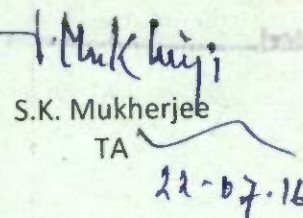 Mukherji
S.K. Mukherjee
TA
22-07-16